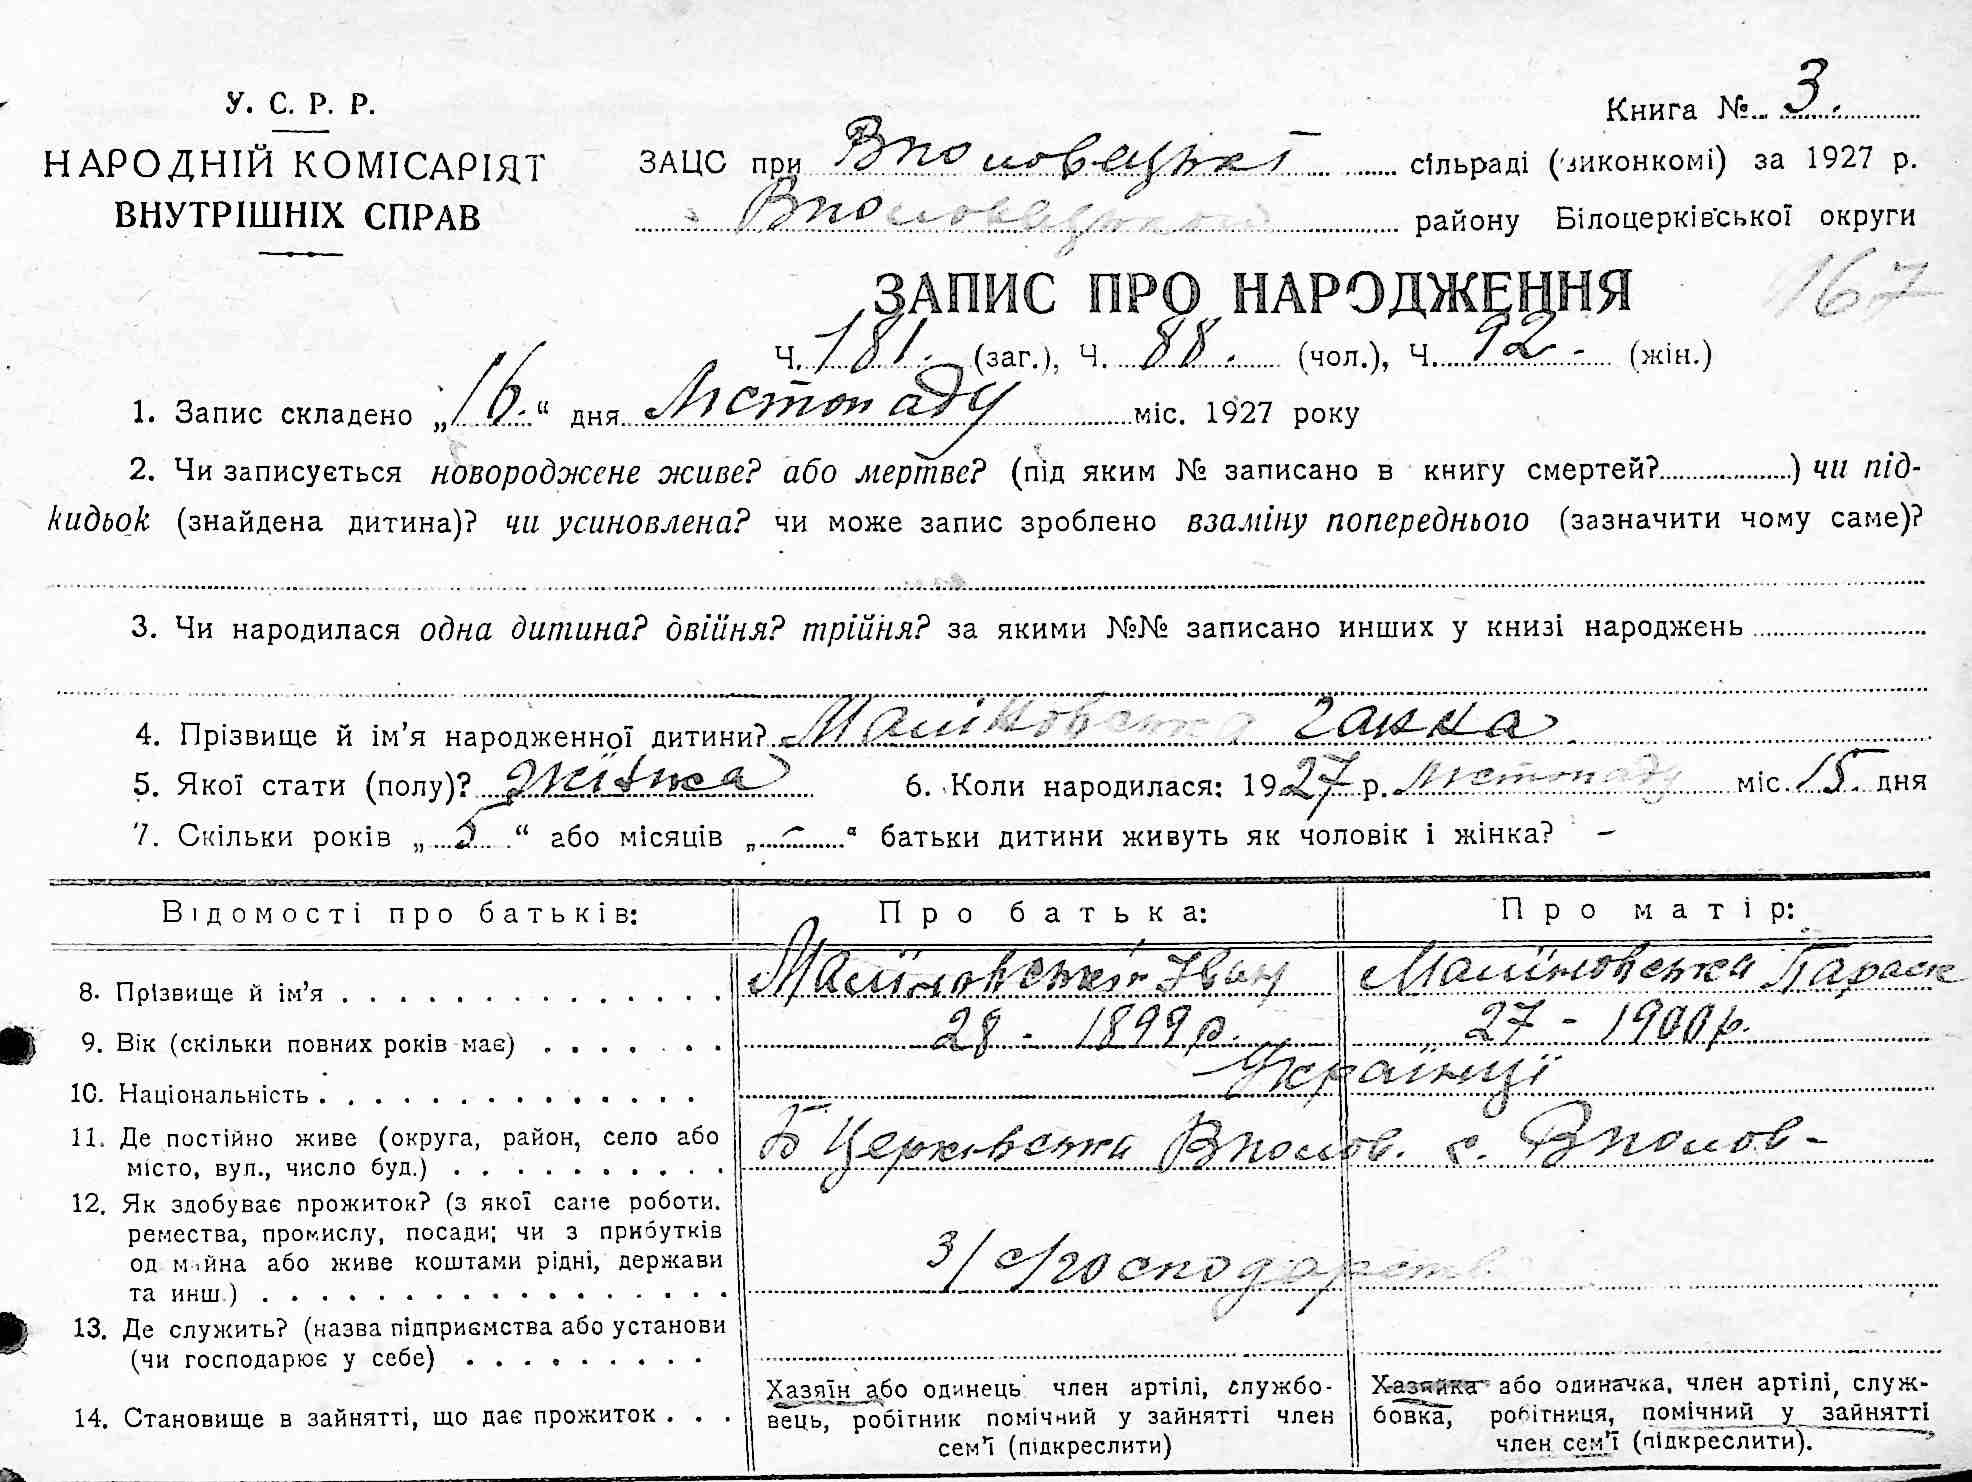 У. С. Р. Р.
НАРОДНІЙ КОМІСАРІЯТ
ВНУТРІШНІХ СПРАВ
Книга № 3.
ЗАЦС при Вполовецкі сільраді (виконкомі) за 1927 р.
Вполовецького району Білоцерківської округи
ЗАПИС ПРО НАРОДЖЕННЯ
167
Ч. 181. (заг.), Ч. 88. (чол.), Ч. 92. (жін.)
1. Запис складено „16.“ дня Лістопаду міс. 1927 року
2. Чи записується новороджене живе? або мертве? (під яким № записано в книгу смертей? ) чи під-
кидьок (знайдена дитина)? чи усиновлена? чи може запис зроблено взаміну попереднього (зазначити чому саме)?
3. Чи народилася одна дитина? двійня? трійня? за якими №№ записано инших у книзі народжень
4. Прізвище й ім’я народженної дитини? Маліновська Ганна
5. Якої стати (полу)? жінка 6. Коли народилася: 1927 р. лістопаду міс. 15. дня
7. Скільки років „ 5 “ або місяців „ - “ батьки дитини живуть як чоловік і жінка? –
Відомості про батьків: Про батька: Про матір:
8. Прізвище й ім’я Маліновський Іван Маліновська Параск
9. Вік (скільки повних років має) 28 - 1899 р. 27 - 1900 р.
10. Національність Українці
11. Де постійно живе (округа, район, село або
місто, вул., число буд.) Б Церківська Вполов. с. Вполов-
12. Як здобуває прожиток? (з якої саме роботи,
ремества, промислу, посади; чи з прибутків
од майна або живе коштами рідні, держави
та инш.) З/с/господарств
13. Де служить? (назва підприємства або установи
(чи господарює у себе)
14. Становище в зайнятті, що дає прожиток
Хазяїн або одинець член артілі, службо-
вець, робітник помічний у зайнятті член
сем’ї (підкреслити)
Хазяйка або одиначка, член артілі, служ-
бовка, робітниця, помічний у зайнятті
член сем’ї (підкреслити).